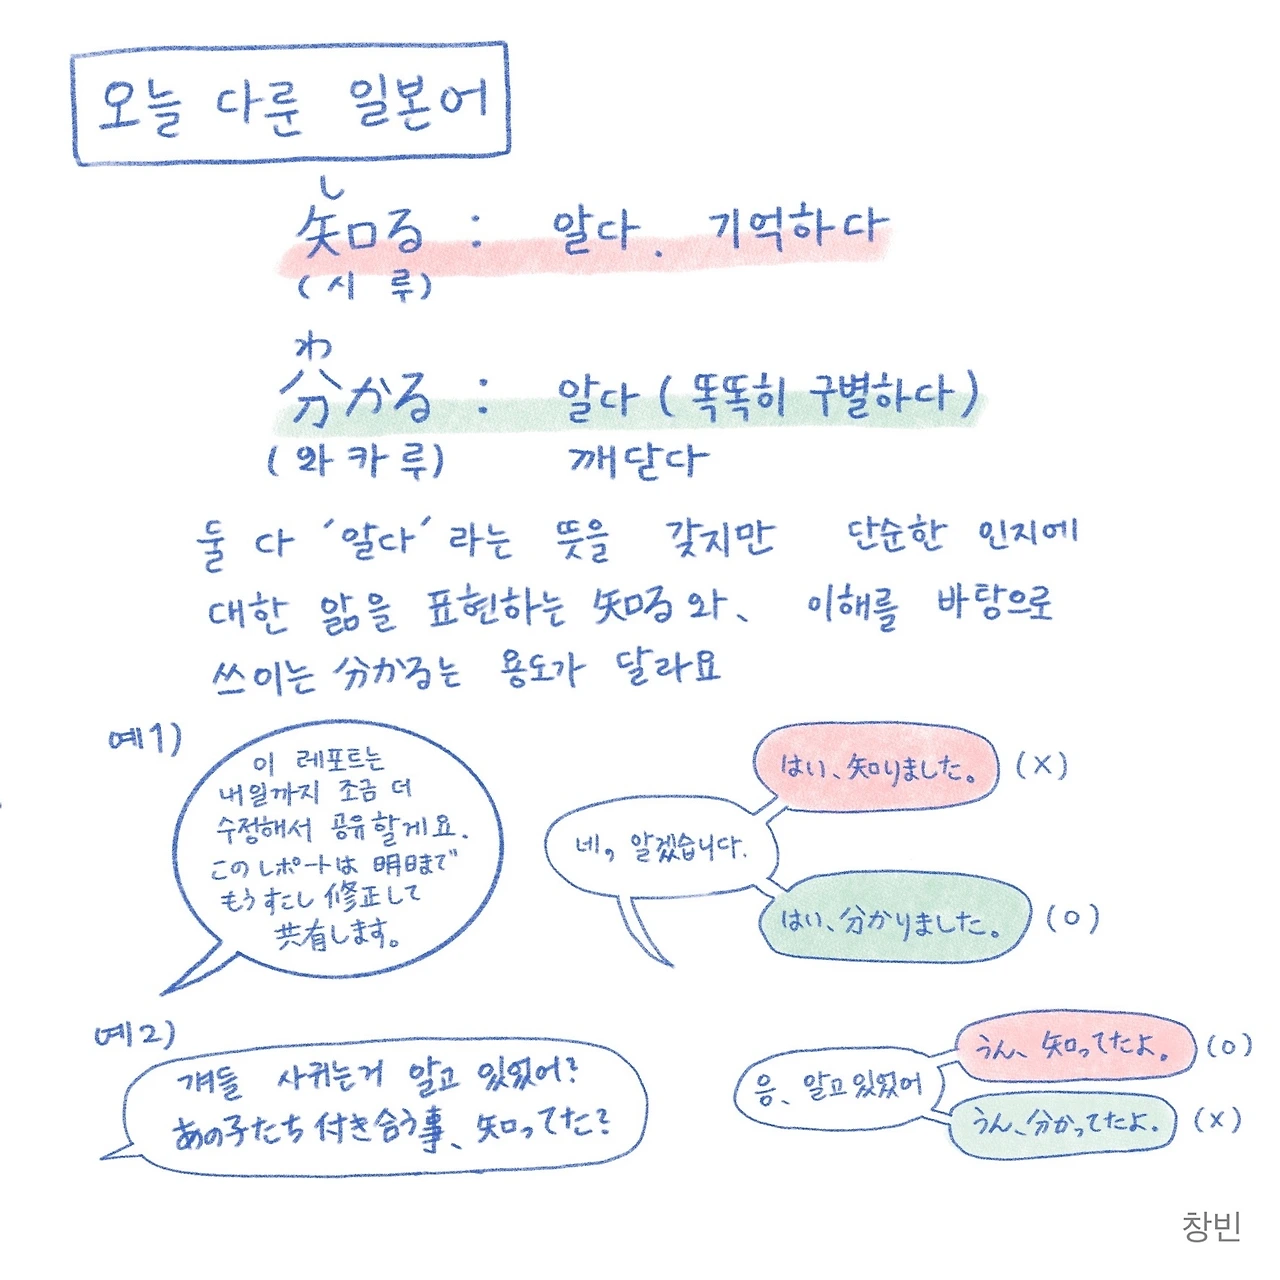 오늘 다룬 일본어
し
知る : 알다. 기억하다
(시 루)
わ
分かる : 알다 (똑똑히 구별하다)
(와 카 루) 깨닫다
둘 다 '알다'라는 뜻을 갖지만 단순한 인지에
대한 앎을 표현하는 知る와、 이해를 바탕으로
쓰이는 分かる는 용도가 달라요
예1)
이 레포트는
내일까지 조금 더
수정해서 공유할게요.
このレポートは 明日まで
もうすこし 修正して
共有します。
네, 알겠습니다.
はい、知りました。 (X)
はい、分かりました。 (O)
예2)
걔들 사귀는거 알고 있었어?
あの子たち 付き合う事、知ってた?
응、알고있었어
うん、知ってたよ。 (O)
うん、分かってたよ。 (X)
창빈